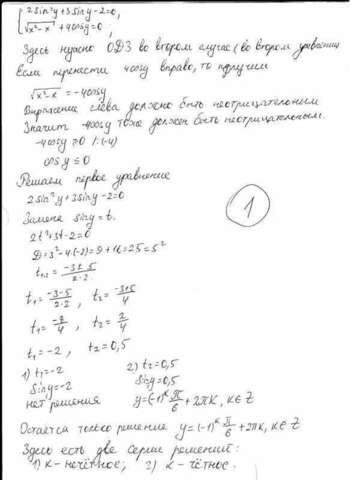 { 2sin²y+3siny-2=0,
√x²-x + 4cosy=0,
Здесь нужно ОДЗ во втором случае (во втором уравнении
Если перенести 4cosy вправо, то получим
√x²-x = -4cosy
Выражение слева должно быть неотрицательном
Значит -4cosy тоже должен быть неотрицательным.
-4cosy ≥0 |:(-4)
cosy ≤ 0
Решаем первое уравнение
2sin²y+3siny-2=0
Замена siny=t.
2t²+3t-2=0
D=3²-4·(-2)·2=9+16=25=5²
t₁,₂= -3±5 / 2·2
t₁= -3-5 / 2·2 , t₂= -3+5 / 4
t₁= -8/4 , t₂= 2/4
t₁=-2 , t₂=0,5
1) t₁=-2 2) t₂=0,5
siny=-2 siny=0,5
нет решения y=(-1)ᵏ π/6 + 2πk, k∈Z
Остается только решение y=(-1)ᵏ π/6 + 2πk, k∈Z
Здесь есть две серии решений:
1) k- нечётное; 2) k- чётное.
1